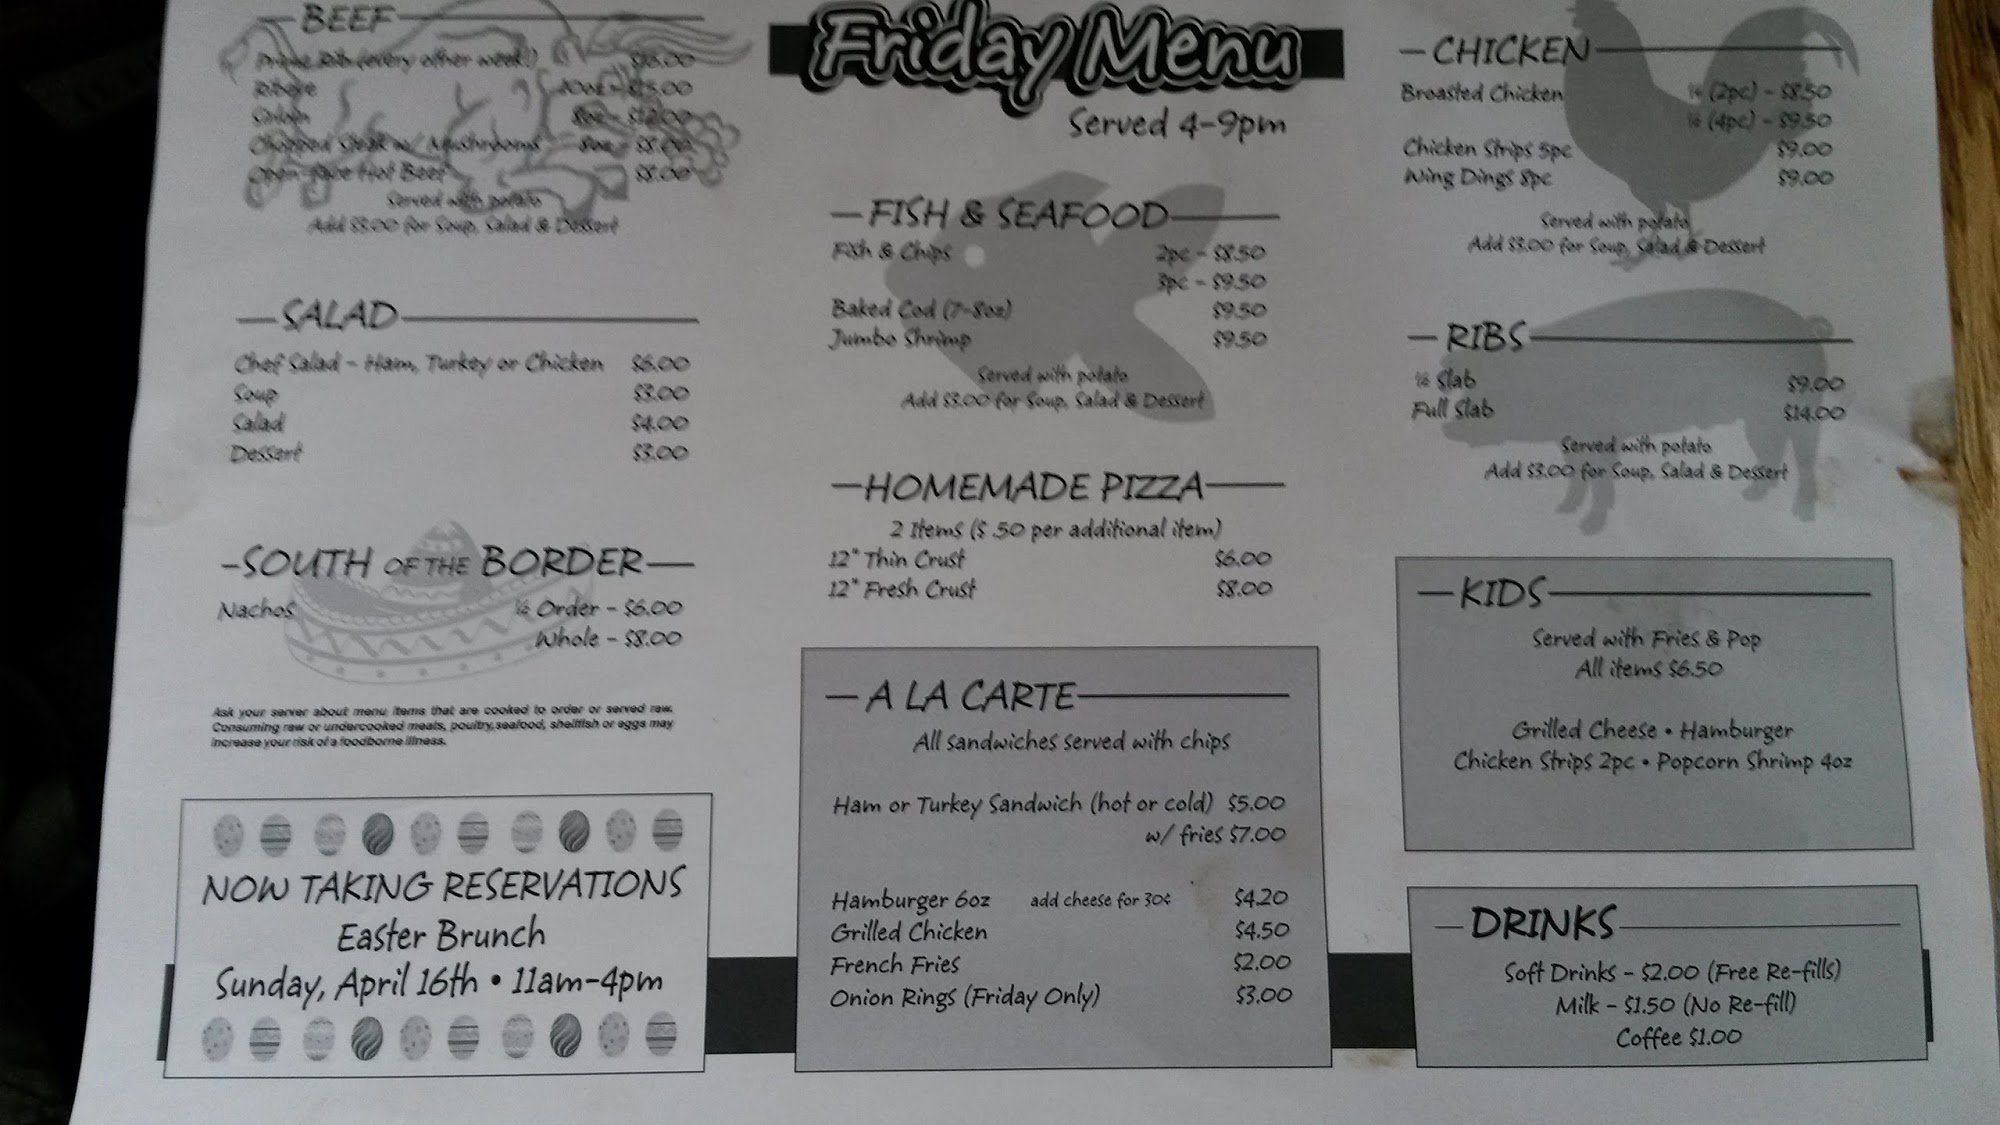 BEEF
Prime Rib (every other week!) $16.00
Ribeye 10oz - $15.00
Sirloin 8oz - $12.00
Chopped Steak w/ Mushrooms 8oz - $8.00
Open Face Hot Beef $8.00
Served with potato
Add $3.00 for Soup, Salad & Dessert
SALAD
Chef Salad - Ham, Turkey or Chicken $6.00
Soup $3.00
Salad $4.00
Dessert $3.00
SOUTH OF THE BORDER
Nachos ½ Order - $6.00
Whole - $8.00
Ask your server about menu items that are cooked to order or served raw.
Consuming raw or undercooked meats, poultry,seafood, shellfish or eggs may
increase your risk of a foodborne illness.
NOW TAKING RESERVATIONS
Easter Brunch
Sunday, April 16th • 11am-4pm
Friday Menu
Served 4-9pm
FISH & SEAFOOD
Fish & Chips 2pc - $8.50
3pc - $9.50
Baked Cod (7-8oz) $9.50
Jumbo Shrimp $9.50
Served with potato
Add $3.00 for Soup, Salad & Dessert
HOMEMADE PIZZA
2 Items ($ .50 per additional item)
12" Thin Crust $6.00
12" Fresh Crust $8.00
A LA CARTE
All sandwiches served with chips
Ham or Turkey Sandwich (hot or cold) $5.00
w/ fries $7.00
Hamburger 6oz add cheese for 30¢ $4.20
Grilled Chicken $4.50
French Fries $2.00
Onion Rings (Friday Only) $3.00
CHICKEN
Broasted Chicken ¼ (2pc) - $8.50
½ (4pc) - $9.50
Chicken Strips 5pc $9.00
Wing Dings 8pc $9.00
Served with potato
Add $3.00 for Soup, Salad & Dessert
RIBS
½ Slab $9.00
Full Slab $14.00
Served with potato
Add $3.00 for Soup, Salad & Dessert
KIDS
Served with Fries & Pop
All items $6.50
Grilled Cheese • Hamburger
Chicken Strips 2pc • Popcorn Shrimp 4oz
DRINKS
Soft Drinks - $2.00 (Free Re-fills)
Milk - $1.50 (No Re-fill)
Coffee $1.00